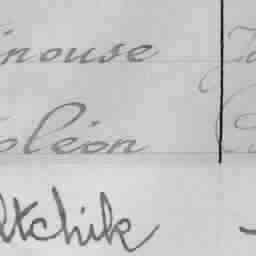 inouse
oléon
ltchik